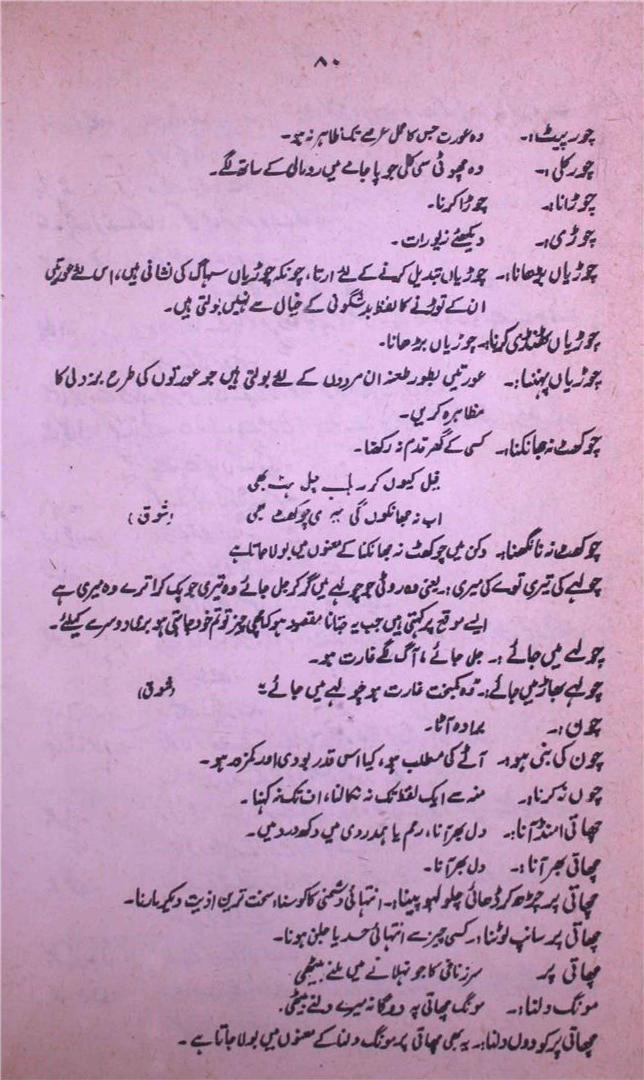 ۸۰
چور پیٹ:۔ وہ عورت جس کا حمل عرصے تک ظاہر نہ ہو۔
چور کلی:۔ وہ چھوٹی سی کلی جو پاجامے میں رومالی کے ساتھ لگے۔
چوڑانا:۔ چوڑا کرنا۔
چوڑی:۔ دیکھئے زیورات۔
چوڑیاں بڑھانا:۔ چوڑیاں تبدیل کرنے کے لئے اتارنا، چونکہ چوڑیاں سہاگ کی نشانی ہیں، اس لئے عورتیں
ان کے توڑنے کا لفظ بدشگونی کے خیال سے نہیں بولتی ہیں۔
چوڑیاں ٹھنڈی کرنا:۔ چوڑیاں بڑھانا۔
چوڑیاں پہننا:۔ عورتیں بطور طعنہ ان مردوں کے لئے بولتی ہیں جو عورتوں کی طرح بزدلی کا
مظاہرہ کریں۔
چوکھٹ نہ جھانکنا:۔ کسی کے گھر قدم نہ رکھنا۔
قبل کیوں کر چل ہٹ بھی
اب نہ جھانکوں گی میری چوکھٹ بھی (شوق)
چوکھٹ نہ نانگھنا:۔ دکن میں چوکھٹ نہ جھانکنا کے معنوں میں بولا جاتا ہے
چولہے کی تیری توے کی میری:۔ یعنی وہ روٹی جو چولہے میں گر کر جل جائے وہ تیری جو پک کر اترے وہ میری ہے
ایسے موقع پر کہتی ہیں جب یہ جتانا مقصود ہو کہ اچھی چیز تو تم خود چاہتی ہو بری دوسرے کیلئے۔
چولہے میں جائے:۔ جل جائے، آگ لگے غارت ہو۔
چولہے بھاڑ میں جائے:۔ "وہ کمبخت غارت ہو چولہے میں جائے" (شوق)
چون:۔ آٹا۔
چون کی بنی ہو:۔ آٹے کی مطلب ہو، کیا اس قدر بودی اور کمزور ہو۔
چوں نہ کرنا:۔ منہ سے ایک لفظ تک نہ نکالنا، اف تک نہ کہنا۔
چھاتی امنڈ آنا:۔ دل بھر آنا، رحم یا ہمدردی میں دکھ درد میں۔
چھاتی بھر آنا:۔ دل بھر آنا۔
چھاتی پر چڑھ کر ڈھائی چلو لہو پینا:۔ انتہائی دشمنی کا کوسنا، سخت ترین اذیت دیکر مارنا۔
چھاتی پر سانپ لوٹنا:۔ کسی چیز سے انتہائی حسد یا جلن ہونا۔
چھاتی پر سرزناخی کا جو نہلانے میں ملنے بیٹھی
مونگ دلنا:۔ مونگ چھاتی پہ دوگانہ میرے دلنے بیٹھی۔
چھاتی پر کودوں دلنا:۔ یہ بھی چھاتی پر مونگ دلنا کے معنوں میں بولا جاتا ہے۔